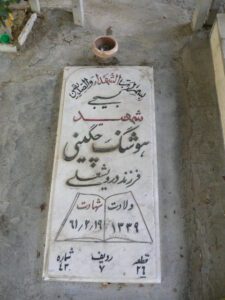 بسم رب الشهداء والصدیقین
بسیجی
شهید
هوشنگ چگینی
فرزند درویشعلی
ولادت شهادت
۱۳۳۹ ۶۱/۲/۱۹
قطعه ردیف شماره
۲۶ ۷ ۴۳